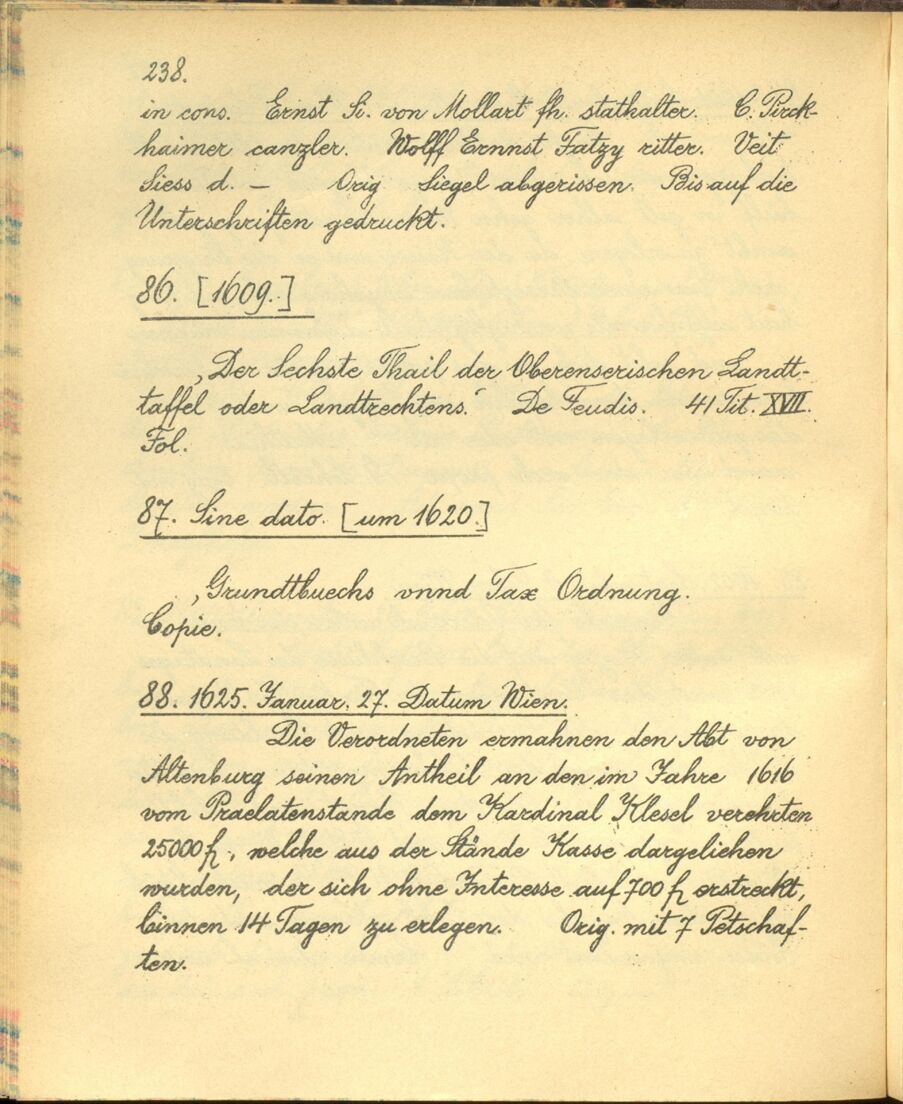 238.
in cons. Ernst Si. von Mollart fh. stathalter. C. Pirck-
haimer canzler. Wolff Ernnst Fatzy ritter. Veit
Siess d. — Orig Siegel abgerissen. Bis auf die
Unterschriften gedruckt.
86. [1609.]
‚Der Sechste Thail der Oberenserischen Landt-
taffel oder Landtrechtens.‘ De Feudis. 41 Tit. XVII.
Fol.
87. Sine dato. [um 1620.]
‚Grundtbuechs vnnd Tax Ordnung.
Copie.
88. 1625. Januar. 27. Datum Wien.
Die Verordneten ermahnen den Abt von
Altenburg seinen Antheil an den im Jahre 1616
vom Praelatenstande dem Kardinal Klesel verehrten
25000 fl., welche aus der Stände Kasse dargeliehen
wurden, der sich ohne Interesse auf 700 fl erstreckt,
binnen 14 Tagen zu erlegen. Orig. mit 7 Petschaf-
ten.